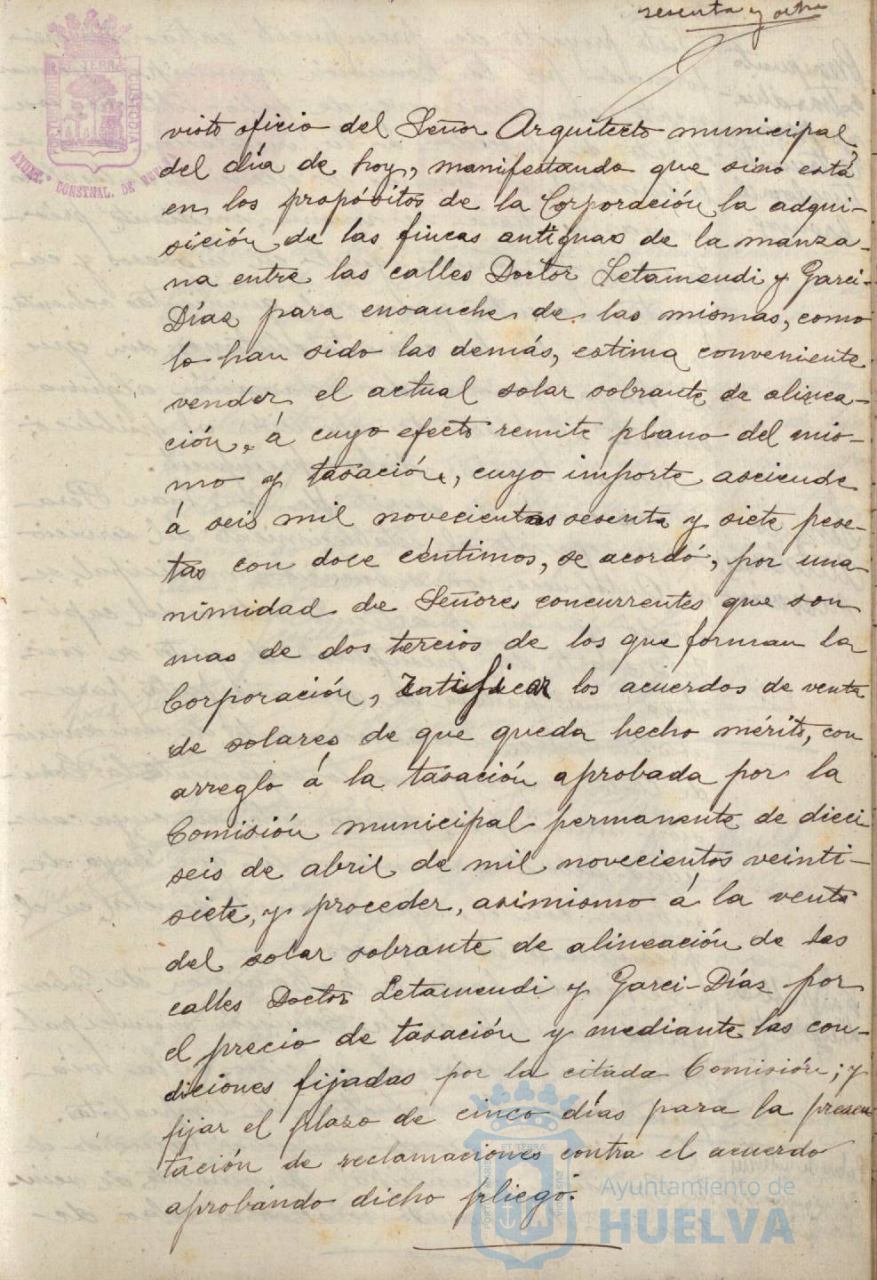 sesenta y ocho
PORTUS MARIS ET TERRAE CUSTODIA
AYUNT.º CONSTNAL. DE HUELVA
visto oficio del Señor Arquitecto municipal
del día de hoy, manifestando que sino está
en los propósitos de la Corporación la adqui-
sición de las fincas antiguas de la manza-
na entre las calles Doctor Letamendi y Garci-
Díaz para ensanche de las mismas, como
lo han sido las demás, estima conveniente
vender el actual solar sobrante de alinea-
ción, á cuyo efecto remite plano del mis-
mo y tasación, cuyo importe asciende
á seis mil novecientas sesenta y siete pese-
tas con doce céntimos, se acordó, por una-
nimidad de Señores concurrentes que son
mas de dos tercios de los que forman la
Corporación, ratificar los acuerdos de venta
de solares de que queda hecho mérito, con
arreglo á la tasación aprobada por la
Comisión municipal permanente de dieci
seis de abril de mil novecientos veinti-
siete, y proceder, asimismo á la venta
del solar sobrante de alineación de las
calles Doctor Letamendi y Garci-Díaz por
el precio de tasación y mediante las con-
diciones fijadas por la citada Comisión; y
fijar el plazo de cinco días para la presen
tación de reclamaciones contra el acuerdo
aprobando dicho pliego.
Ayuntamiento de
HUELVA